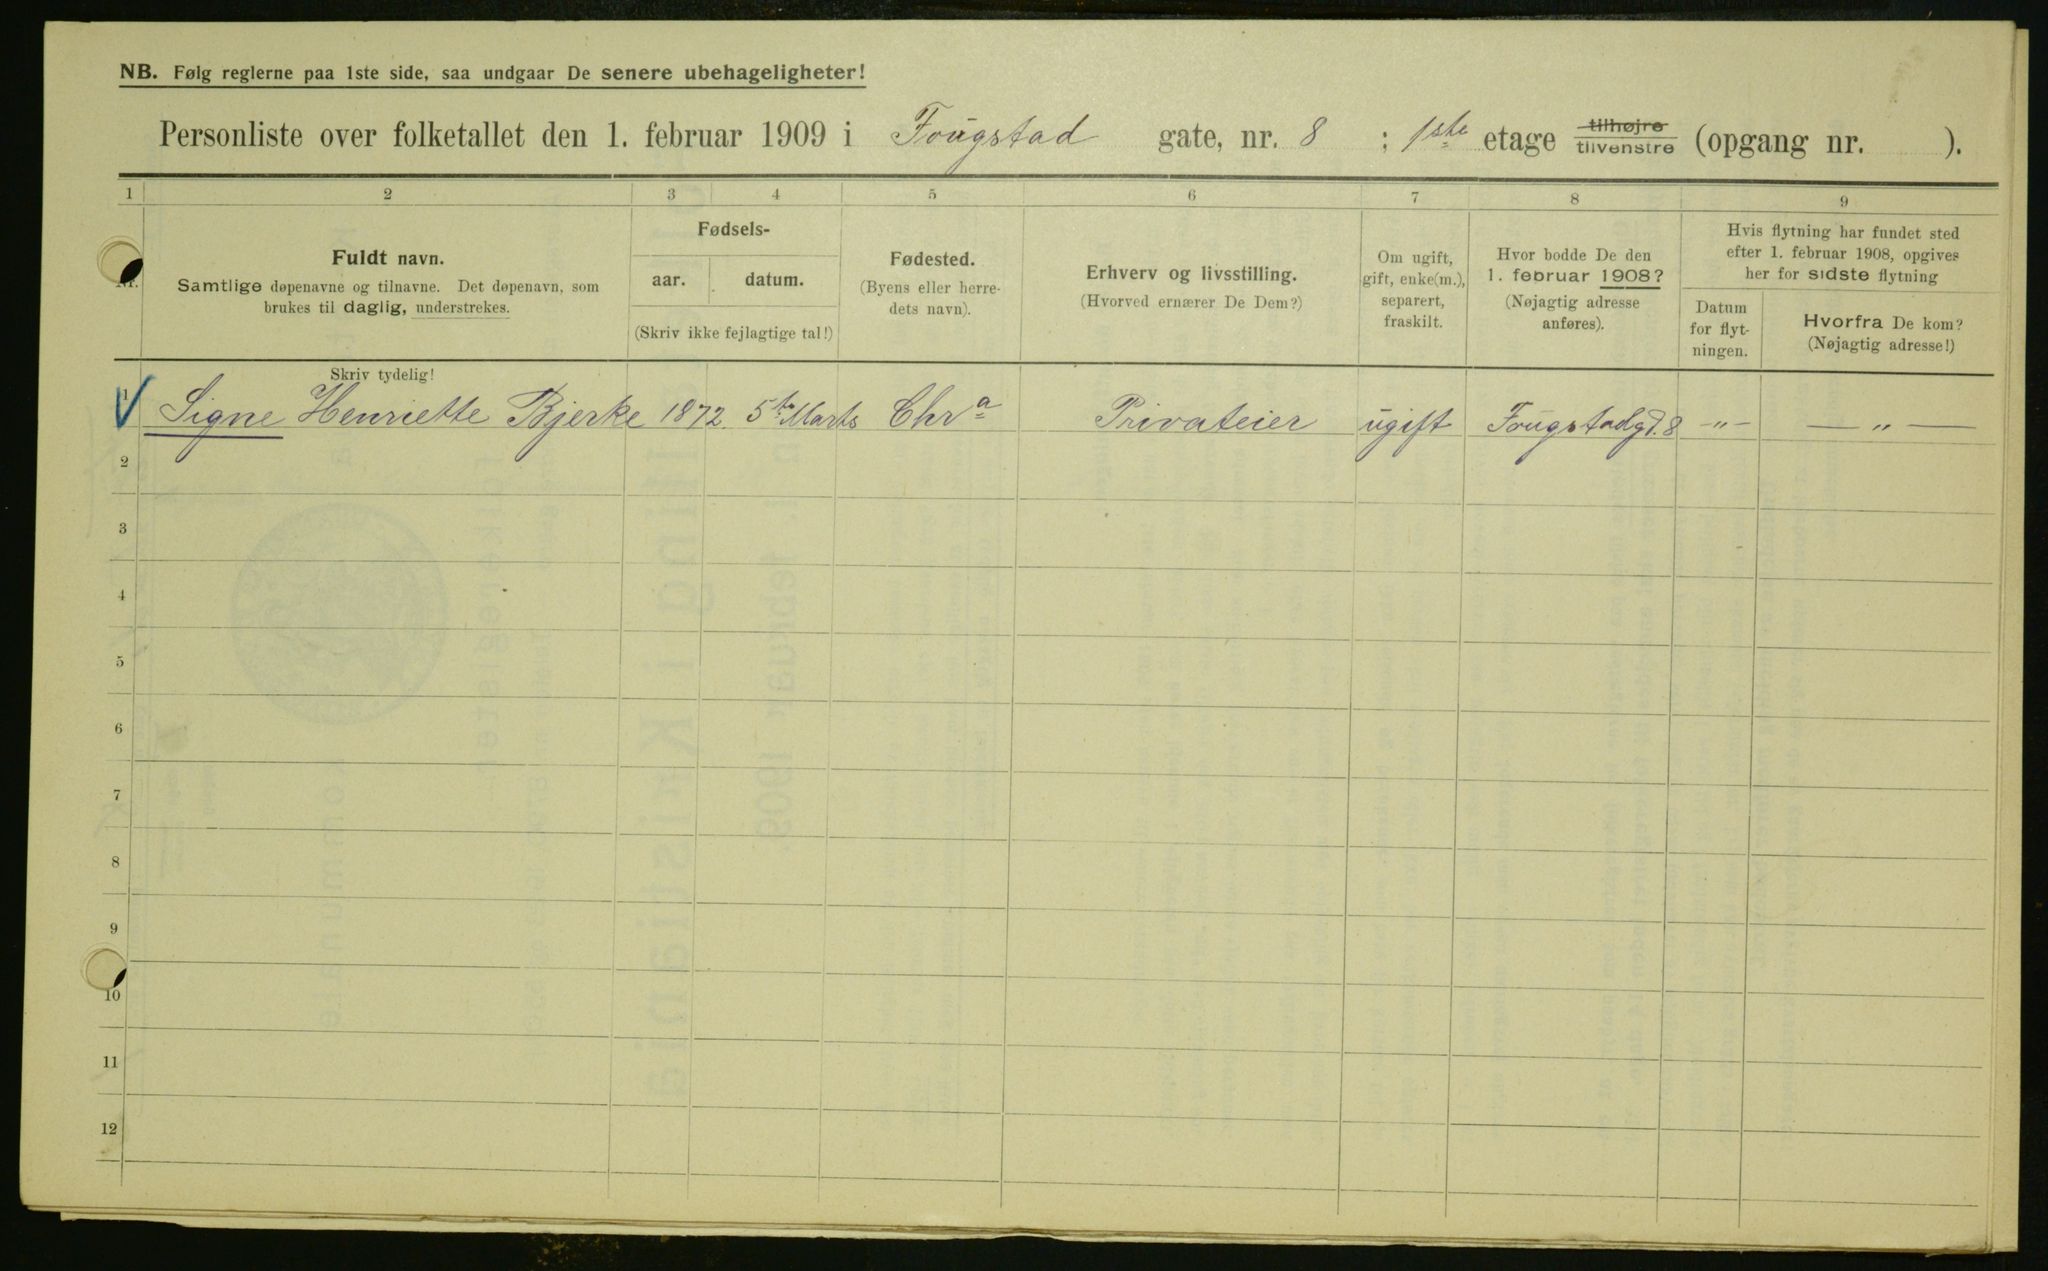 NB. Følg reglerne paa 1ste side, saa undgaar De senere ubehageligheter!
Personliste over folketallet den 1. februar 1909 i Fougstad gate, nr. 8 ; 1ste etage tilhøjre tilvenstre (opgang nr. ).
1 2 3 4 5 6 7 8 9
Nr.
Fuldt navn.
Samtlige døpenavne og tilnavne. Det døpenavn, som
brukes til daglig, understrekes.
Fødsels-
aar. datum.
(Skriv ikke fejlagtige tal!)
Fødested.
(Byens eller herre-
dets navn).
Erhverv og livsstilling.
(Hvorved ernærer De Dem?)
Om ugift,
gift, enke(m.),
separert,
fraskilt.
Hvor bodde De den
1. februar 1908?
(Nøjagtig adresse
anføres).
Hvis flytning har fundet sted
efter 1. februar 1908, opgives
her for sidste flytning
Datum
for flyt-
ningen.
Hvorfra De kom?
(Nøjagtig adresse!)
Skriv tydelig!
1 Signe Henriette Bjerke 1872. 5te Marts Chra Privateier ugift Fougstadgd. 8 —„— — „ —
2
3
4
5
6
7
8
9
10
11
12